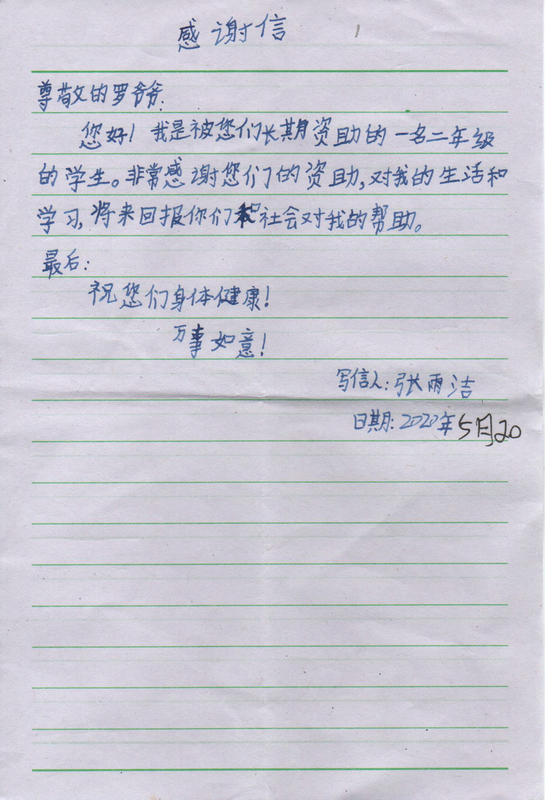 感谢信
尊敬的罗爷爷.
您好！我是被您们长期资助的一名二年级
的学生。非常感谢您们的资助,对我的生活和
学习,将来回报你们和社会对我的帮助。
最后:
祝您们身体健康！
万事如意！
写信人:张雨洁
日期:2020年5月20